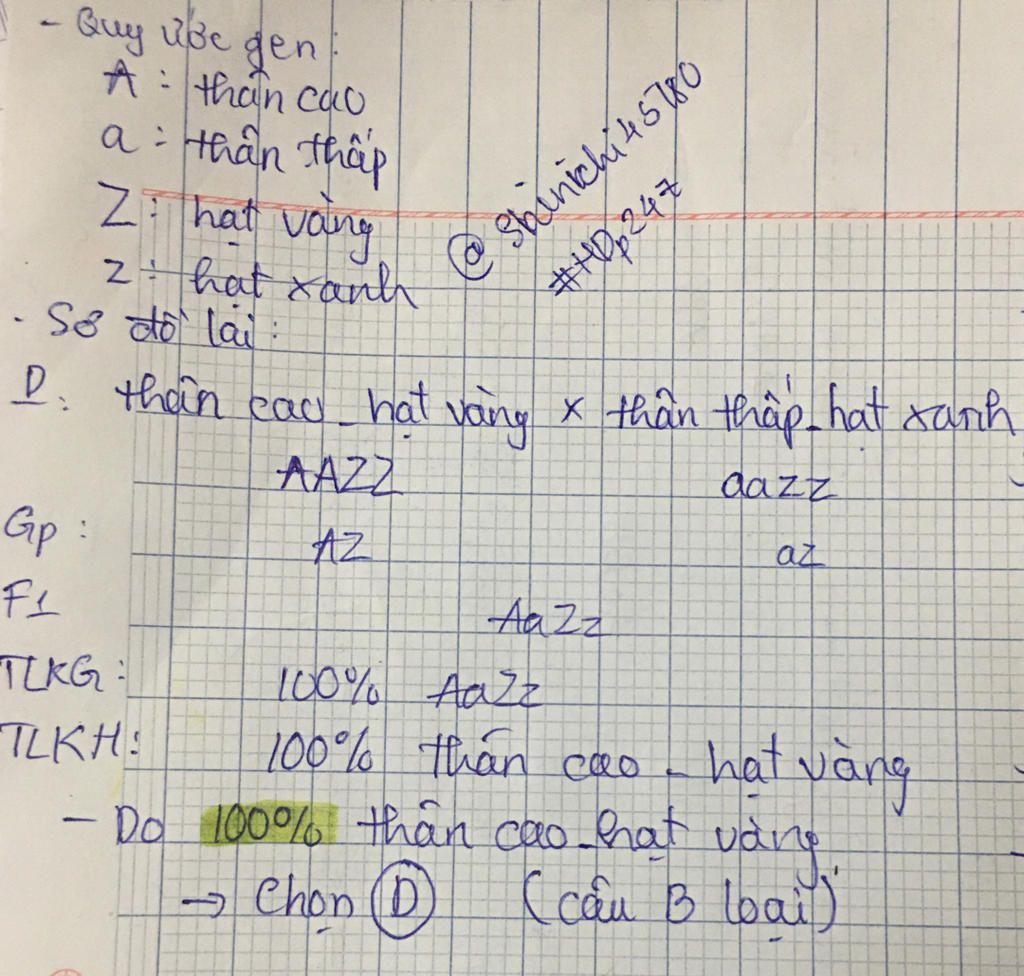 - Quy ước gen:
A : thân cao
a : thân thấp
Z : hạt vàng
z : hạt xanh
@ Shinichi45780
#HDp247
- Sơ đồ lại:
P: thân cao - hạt vàng x thân thấp - hạt xanh
AAZZ aazz
Gp: AZ az
F1 AaZz
TLKG: 100% AaZz
TLKH: 100% thân cao - hạt vàng
- Do 100% thân cao - hạt vàng
→ Chọn D (câu B loại)